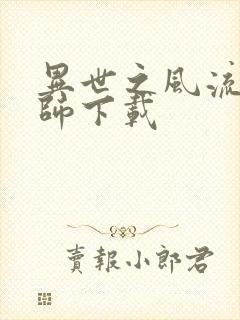 異世之風流
師下載
賣報小郎君